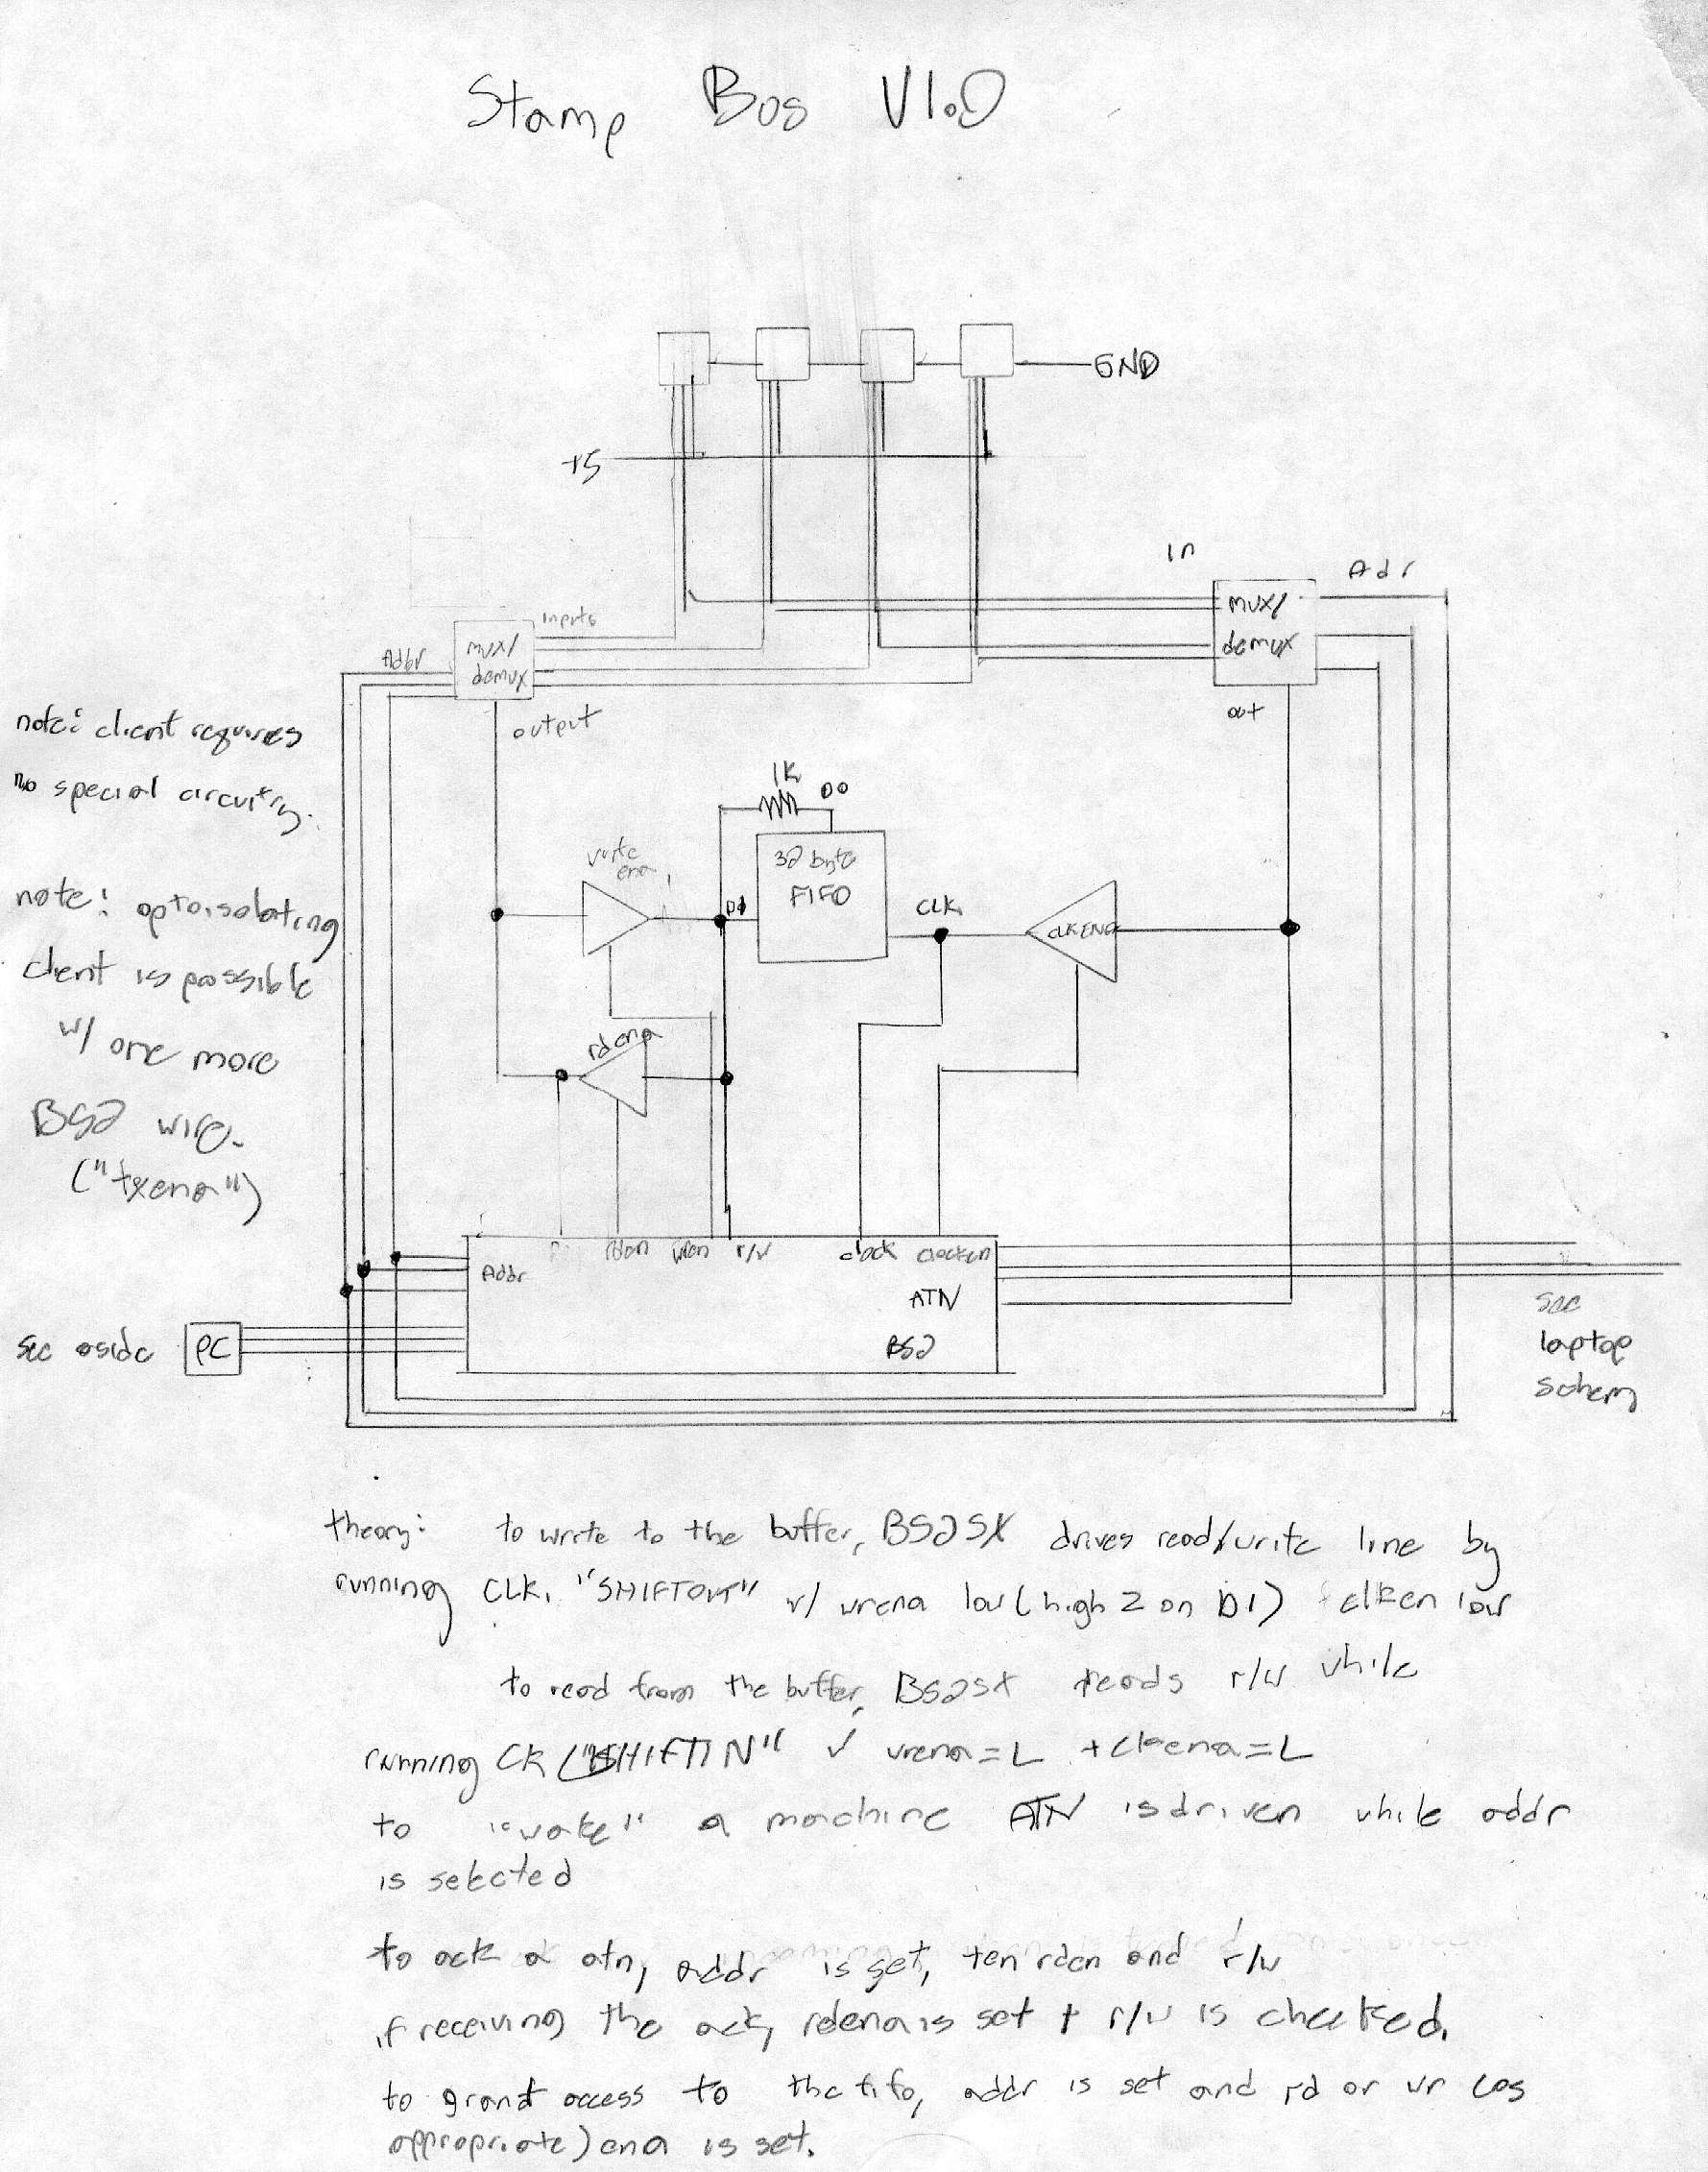 Stamp Bus V1.0
GND
+5
In
Adr
mux/
demux
out
Inputs
Addr
mux/
demux
output
note: client requires
no special circuitry.
note: optoisolating
client is possible
w/ one more
BS2 wire.
("txena")
1K
DO
write
ena
DI
32 byte
FIFO
CLK
CLKENA
rdena
rden
wren
r/w
clock
clocken
Addr
ATN
BS2
see aside
PC
see
laptop
schem
theory: to write to the buffer, BS2SX drives read/write line by
running CLK, "SHIFTOUT" w/ wrena low (high Z on DI) + clken low
to read from the buffer, BS2SX reads r/w while
running CK ("SHIFTIN" w/ wrena=L + ckena=L
to "wake" a machine ATN is driven while addr
is selected
to ack a atn, addr is set, ten rden and r/w
if receiving the ack, rdena is set + r/w is checked.
to grant access to the fifo, addr is set and rd or wr (as
appropriate) ena is set.